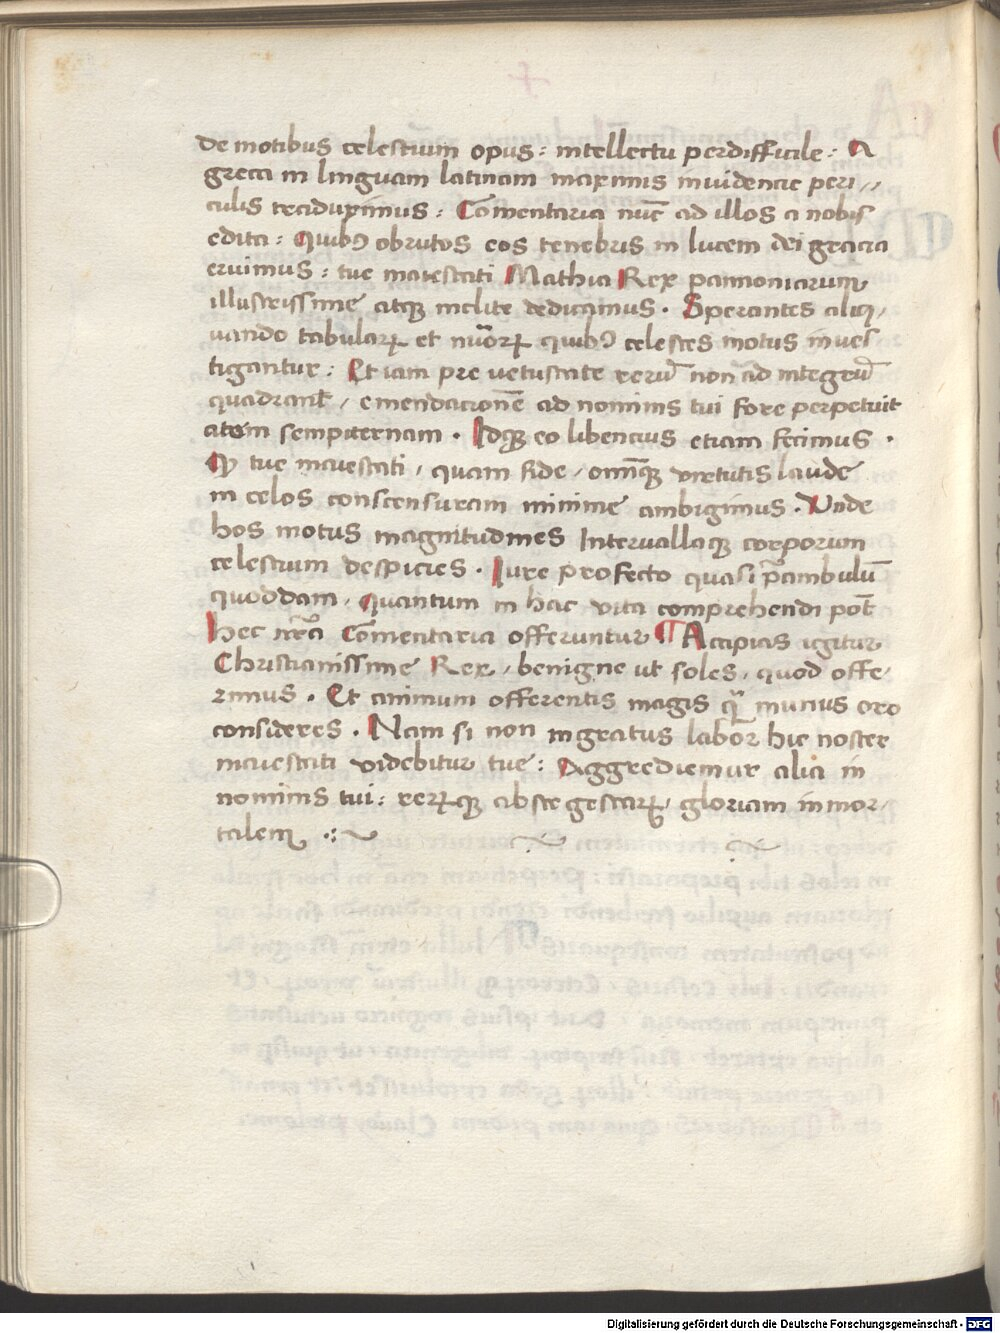 de motibus celestium opus : intellectu perdifficile : A
greca in linguam latinam maximis inuidencie peri//
culis traduximus : Comentaria nūc ad illos a nobis
edita : Quibꝰ obrutos eos tenebris in lucem dei gracia
eruimus : tue maiestati Mathia Rex pannoniarum
illustrissime atqꝫ inclite dedicimus . Sperantes aliq/
uando tabularꝝ et nr̄orꝝ quibꝰ celestes motus inues
tigantur : Et iam pre uetustate rerū non ad integrū
quadrant / emendacionē ad nominis tui fore perpetuit
atem sempiternam . Idqꝫ eo libencius etiam fecimus .
Qꝫ tue maiestati / quam fide / omīqꝫ virtutis laude
in celos conscensuram minime ambigimus . Unde
hos motus magnitudines Interuallaqꝫ corporum
celestium despicies . Iure profecto quasi p̄ambulū
quoddam . Quantum in hac vita comprehendi pot̄
hec nr̄a Comentaria offeruntur ¶ Accipias igitur
Christianissime Rex / benigne ut soles / quod offe
rimus . Et animum offerentis magis q̄ munus oro
consideres . Nam si non ingratus labor hic noster
maiestati videbitur tue : Aggrediemur alia in
nominis tui : rerꝝqꝫ abs te gestarꝝ / gloriam inmor
talem .:~
Digitalisierung gefördert durch die Deutsche Forschungsgemeinschaft - DFG